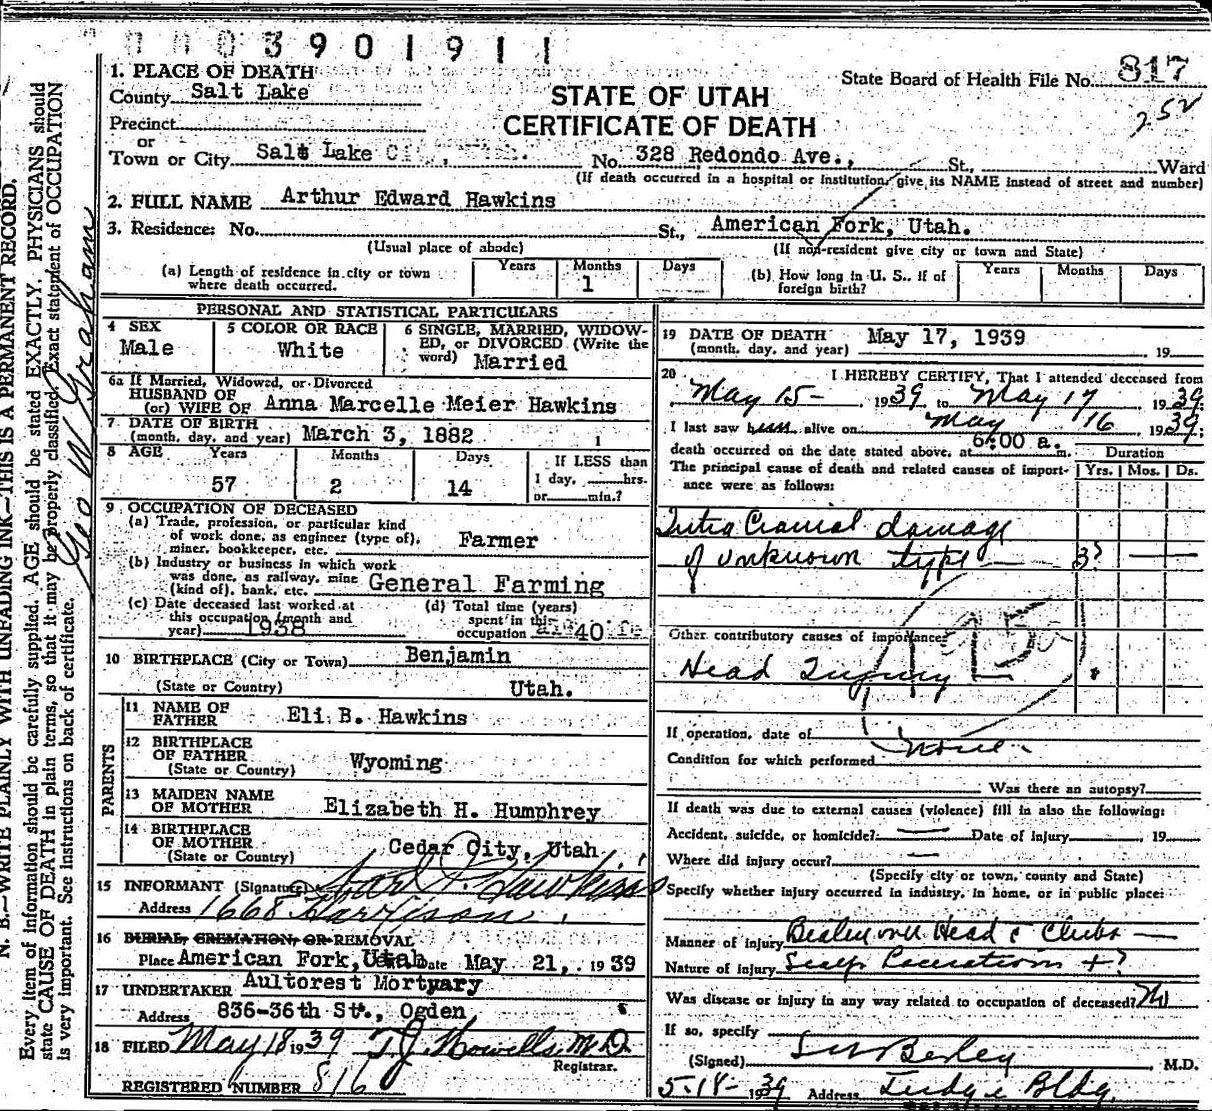 03901911
1. PLACE OF DEATH
County Salt Lake
State Board of Health File No. 817
252
STATE OF UTAH
CERTIFICATE OF DEATH
Precinct
or
Town or City Salt Lake City, No. 328 Redondo Ave., St., Ward
(If death occurred in a hospital or institution, give its NAME instead of street and number)
2. FULL NAME Arthur Edward Hawkins
3. Residence: No. St., American Fork, Utah.
(Usual place of abode) (If non-resident give city or town and State)
(a) Length of residence in city or town where death occurred. Years Months 1 Days
(b) How long in U. S., if of foreign birth? Years Months Days
PERSONAL AND STATISTICAL PARTICULARS
4 SEX Male
5 COLOR OR RACE White
6 SINGLE, MARRIED, WIDOWED, or DIVORCED (Write the word) Married
6a If Married, Widowed, or Divorced
HUSBAND OF
(or) WIFE OF Anna Marcelle Meier Hawkins
7 DATE OF BIRTH
(month, day, and year) March 3, 1882
8 AGE Years 57 Months 2 Days 14 If LESS than 1 day, hrs. or min.?
9 OCCUPATION OF DECEASED
(a) Trade, profession, or particular kind of work done, as engineer (type of), miner, bookkeeper, etc. Farmer
(b) Industry or business in which work was done, as railway, mine (kind of), bank, etc. General Farming
(c) Date deceased last worked at this occupation (month and year) 1938
(d) Total time (years) spent in this occupation 40
10 BIRTHPLACE (City or Town) Benjamin
(State or Country) Utah.
PARENTS
11 NAME OF FATHER Eli B. Hawkins
12 BIRTHPLACE OF FATHER (State or Country) Wyoming
13 MAIDEN NAME OF MOTHER Elizabeth H. Humphrey
14 BIRTHPLACE OF MOTHER (State or Country) Cedar City, Utah.
15 INFORMANT (Signature) Hawkins
Address 1668 Harrison
16 BURIAL, CREMATION, OR REMOVAL
Place American Fork, Utah Date May 21, 1939
17 UNDERTAKER Aultorest Mortuary
Address 836-36th St., Ogden
18 FILED May 18 1939 T J Howells M.D.
Registrar.
REGISTERED NUMBER 816
19 DATE OF DEATH
(month, day, and year) May 17, 1939 19
20 I HEREBY CERTIFY, That I attended deceased from
May 15- 1939 to May 17 1939;
I last saw him alive on May 16 1939;
death occurred on the date stated above, at 6:00 a. m.
Duration
The principal cause of death and related causes of importance were as follows: Yrs. Mos. Ds.
Intra Cranial damage
of unknown type 3?
Other contributory causes of importance:
Head Injury
If operation, date of none
Condition for which performed
Was there an autopsy?
If death was due to external causes (violence) fill in also the following:
Accident, suicide, or homicide? Date of injury , 19
Where did injury occur?
(Specify city or town, county and State)
Specify whether injury occurred in industry, in home, or in public place:
Manner of injury Beaten over Head c Clubs
Nature of injury Scalp Lacerations + ?
Was disease or injury in any way related to occupation of deceased? No
If so, specify
(Signed) M.D.
5-18-1939 Address Judge Bldg.
N. B.—WRITE PLAINLY WITH UNFADING INK—THIS IS A PERMANENT RECORD.
Every item of information should be carefully supplied. AGE should be stated EXACTLY. PHYSICIANS should
state CAUSE OF DEATH in plain terms, so that it may be properly classified. Exact statement of OCCUPATION
is very important. See instructions on back of certificate.
Geo W Graham